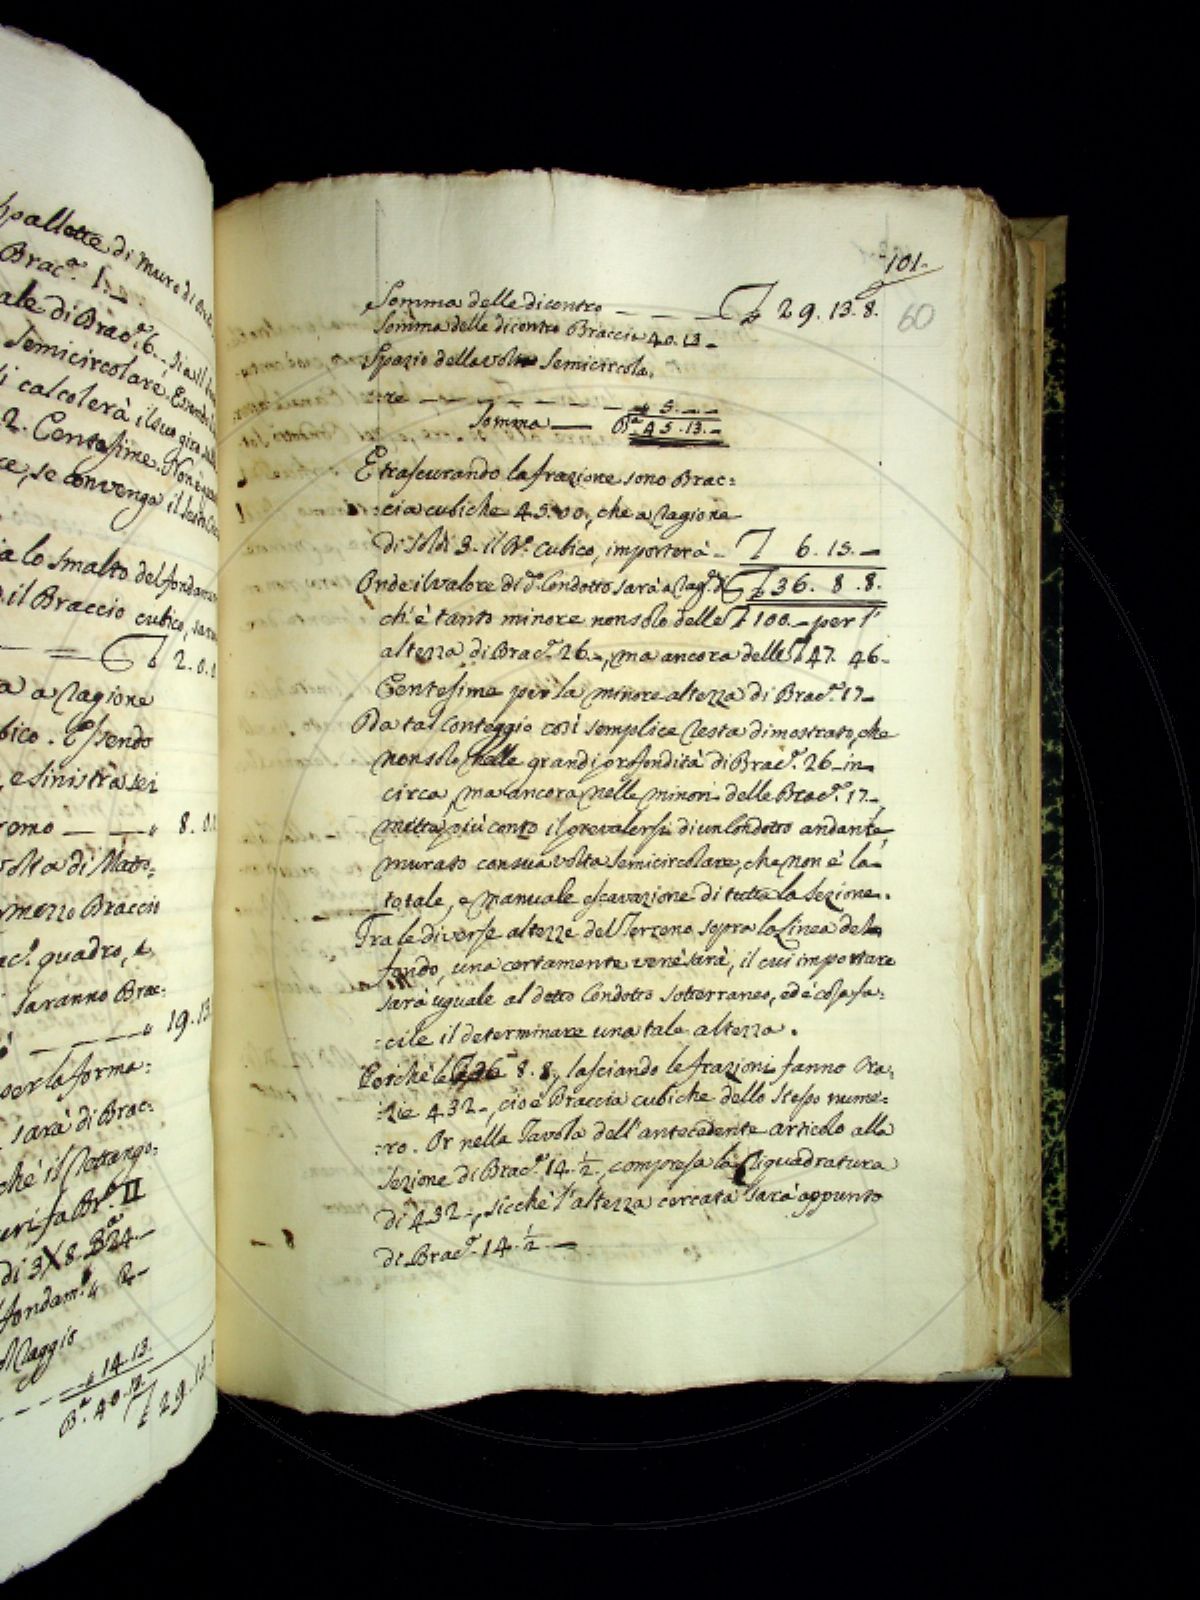 spallette di Muro di
Brac.ª 1
ale di Brac.ª 6. sia il
Semicircolare. Essendo
si calcolerà il suo giro
2. Centesime. Non è
ce, se convenga il
ia lo smalto del fondam
il Braccio cubico, sarà
₤ 2. 0. 0
a a ragione
bico. Essendo
, e sinistra sei
romo — — " 8. 0.
volta di Matto:
mezzo Braccio
ac.º quadro, e
saranno Brac:
— — " 19. 13.
per la forma:
sarà di Brac:
chè il Rettango:
di 3X8. Bª 24.—
fondam.º " 2—
" 14. 13.
Bª. 40. 13.
₤ 29. 13.
101.
60
Somma delle dicontro — — — ₤ 29. 13. 8.
Somma delle dicontro Braccia 40. 13.—
Spazio della volta Semicircola:
:re — — — — — — " 5. — —
Somma — Bª. 45. 13.—
E trascurando la frazione sono Brac:
:cia cubiche 45. 00., che a ragione
di soldi 3. il Bº. cubico, importerà — ₤ 6. 15. —
Onde il valore di dº. Condotto sarà a rag.º di ₤ 36. 8. 8.
ch'è tanto minore non solo delle ₤ 100.— per l'
altezza di Brac.ª 26.—, ma ancora delle ₤ 47. 46—
Centesime per la minore altezza di Brac.ª 17—
Da tal Conteggio così semplice resta dimostrato, che
non solo nelle grandi profondità di Brac.ª 26— in—
circa, ma ancora nelle minori delle Brac.ª 17—,
mettà più conto il prevalersi di un Condotto andante,
murato con sua volta Semicircolare, che non è la—
totale, e manuale escavazione di tutta la Sezione.
Tra le diverse altezze del Terreno sopra la linea del—
fondo, una certamente ve n'è sarà, il cui importare
sarà uguale al detto Condotto sotterraneo, ed è cosa fa:
:cile il determinare una tale altezza.
Perchè le ₤ 36 8. 8., lasciando le frazioni fanno Cra:
:zie 432—, cioè Braccia cubiche dello stesso nume:
:ro. Or nella Tavola dell'antecedente articolo alla
Sezione di Brac.ª 14. ½., compresa la Riquadratura
di 432—, sicchè l'altezza cercata sarà appunto
di Brac.ª 14. ½ —